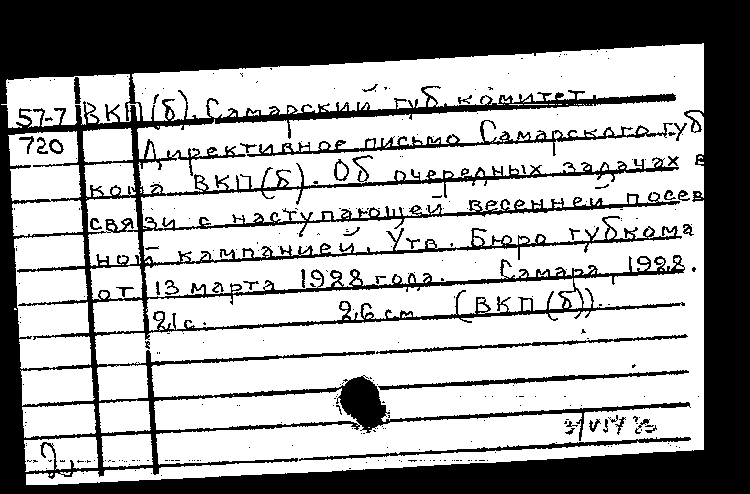 57-7 ВКП(б). Самарский губ. комитет.
720 Директивное письмо Самарского губ
кома ВКП(б). Об очередных задачах в
связи с наступающей весенней посев
ной кампанией. Утв. Бюро губкома
от 13 марта 1928 года. Самара, 1928.
21с. 26 см (ВКП(б)).